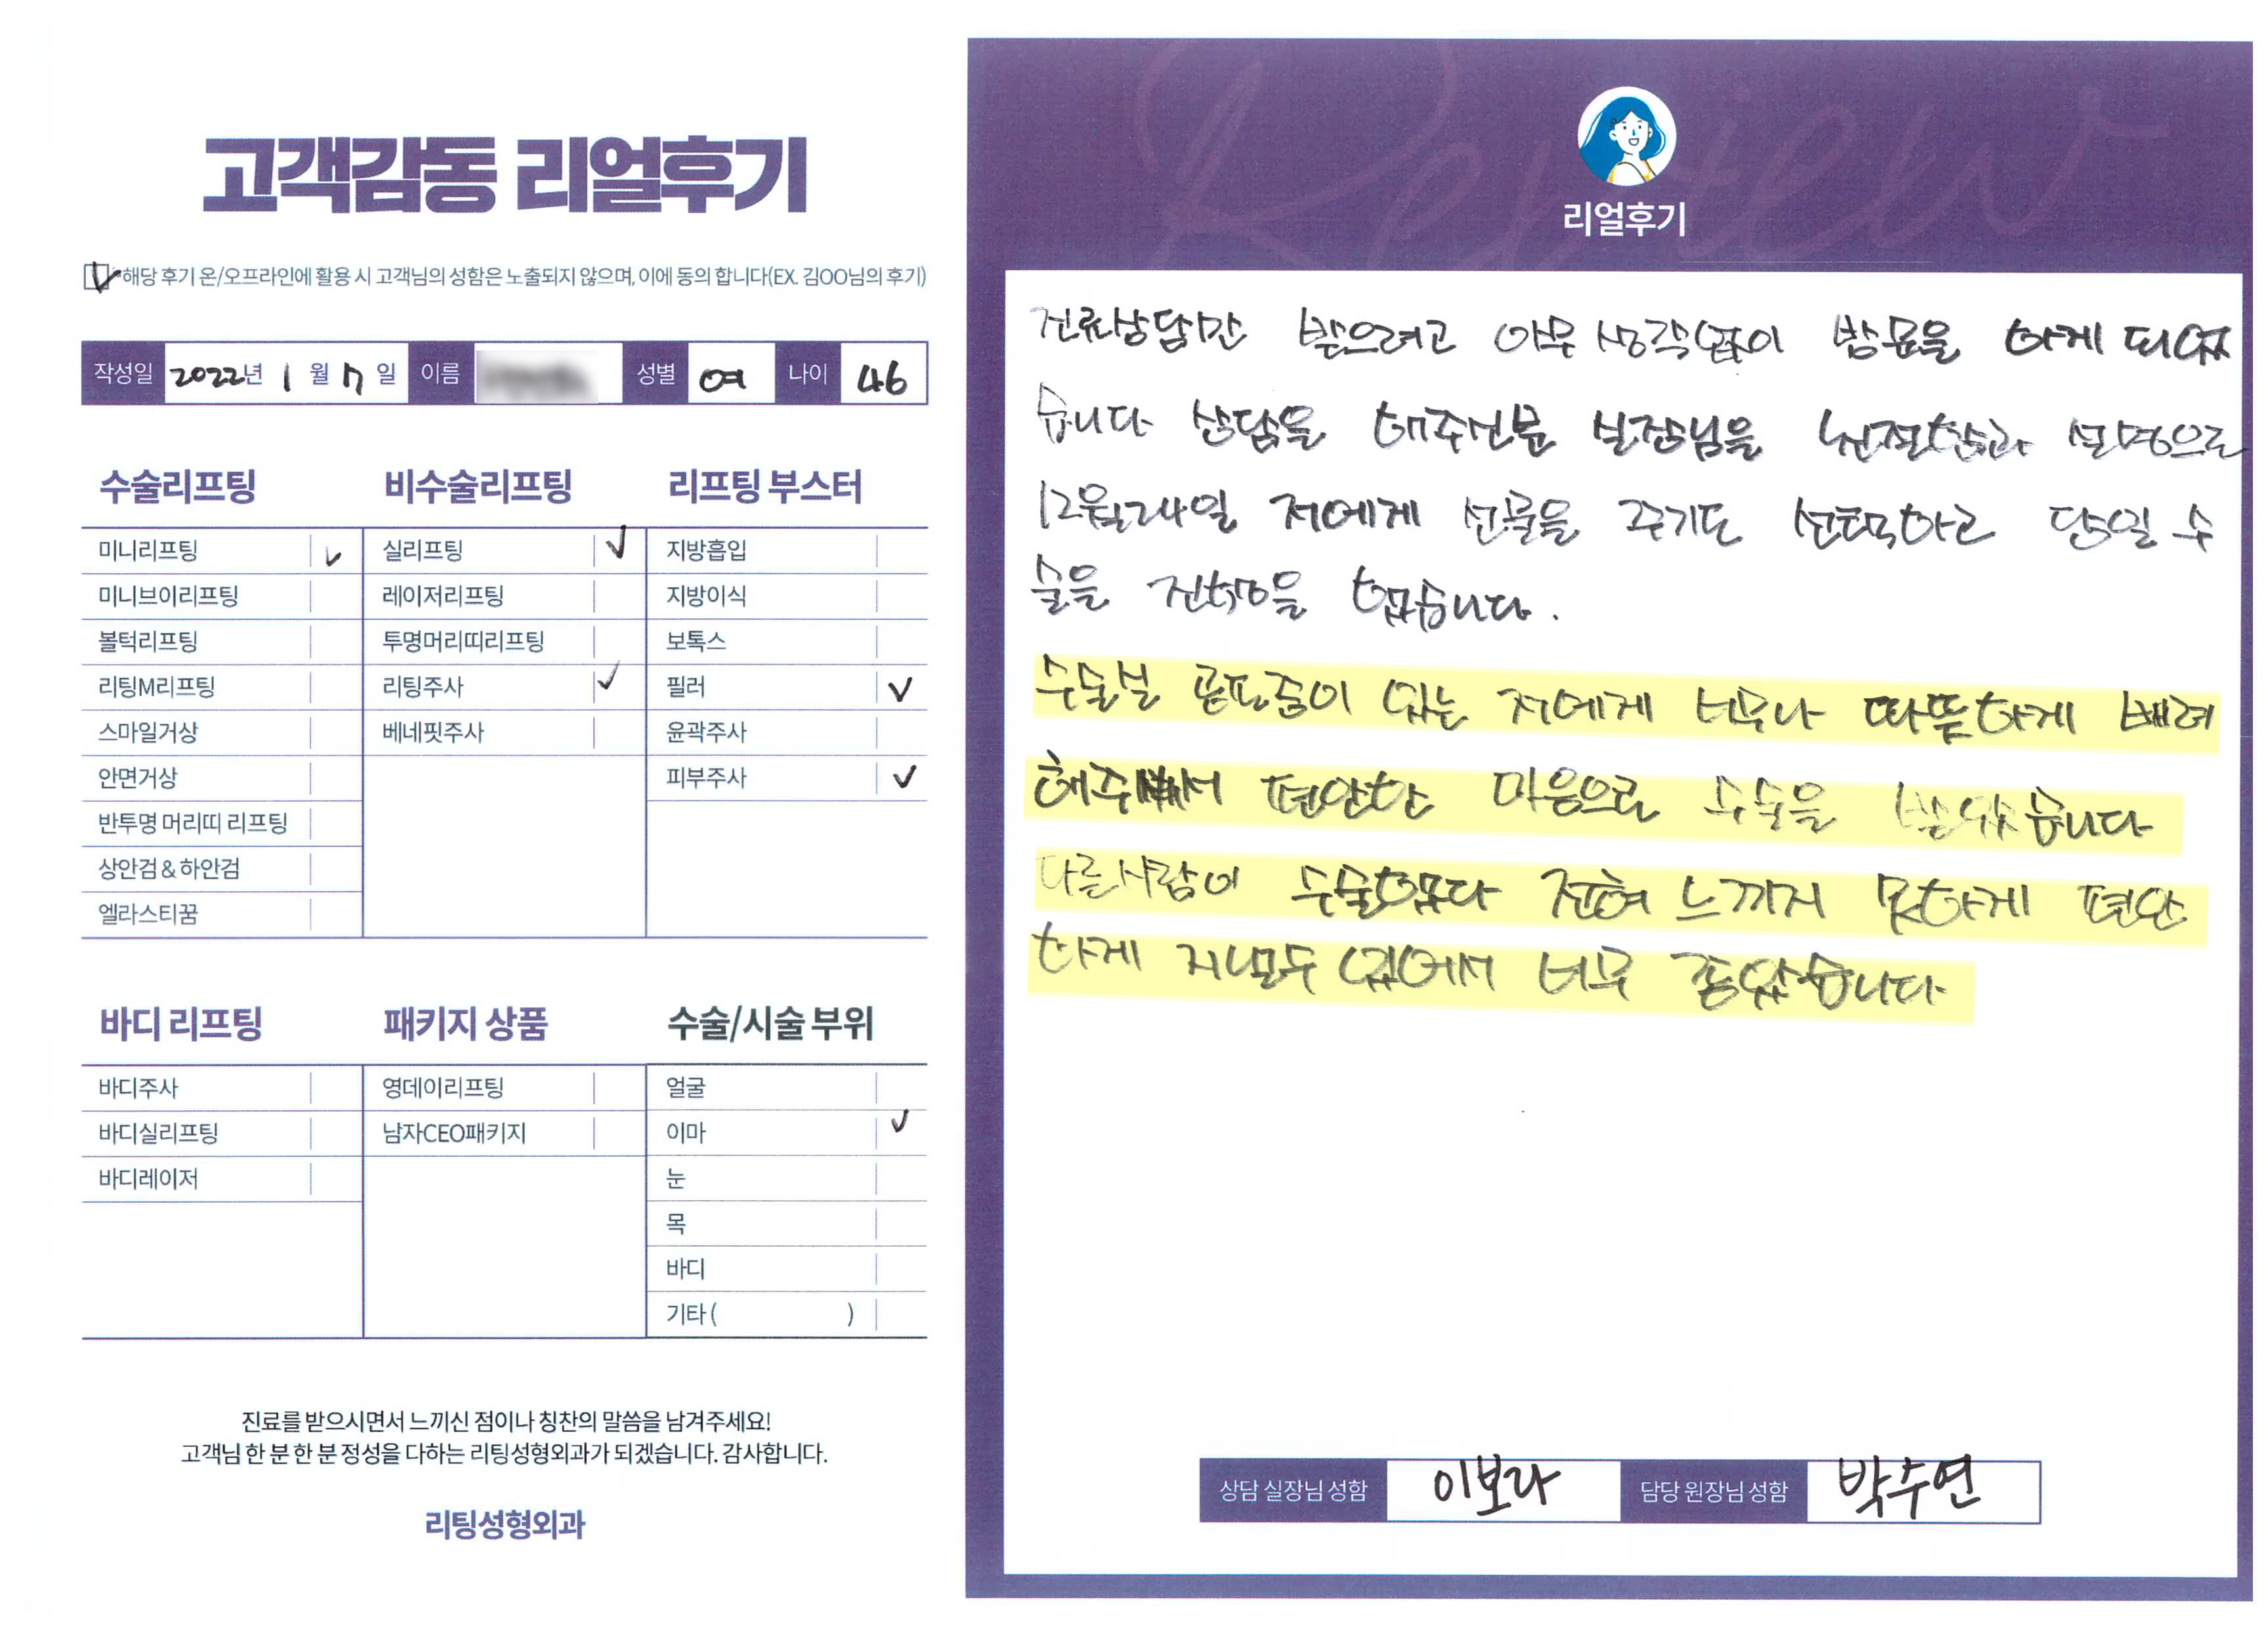 고객감동 리얼후기
해당 후기 온/오프라인에 활용 시 고객님의 성함은 노출되지 않으며, 이에 동의 합니다(EX. 김OO님의 후기)
작성일 2022년 1월 7일 이름 성별 여 나이 46
수술리프팅
미니리프팅
미니브이리프팅
볼턱리프팅
리팅M리프팅
스마일거상
안면거상
반투명 머리띠 리프팅
상안검&하안검
엘라스티꿈
비수술리프팅
실리프팅
레이저리프팅
투명머리띠리프팅
리팅주사
베네핏주사
리프팅 부스터
지방흡입
지방이식
보톡스
필러
윤곽주사
피부주사
바디 리프팅
바디주사
바디실리프팅
바디레이저
패키지 상품
영데이리프팅
남자CEO패키지
수술/시술 부위
얼굴
이마
눈
목
바디
기타( )
진료를 받으시면서 느끼신 점이나 칭찬의 말씀을 남겨주세요!
고객님 한 분 한 분 정성을 다하는 리팅성형외과가 되겠습니다. 감사합니다.
리팅성형외과
Review
리얼후기
진료상담만 받으려고 아무 생각없이 방문을 하게 되었
습니다 상담을 해주신분 실장님을 친절함과 설명으로
12월24일 저에게 선물을 주기도 선택하고 당일 수
술을 진행을 했습니다.
수술실 공포증이 있는 저에게 너무나 따뜻하게 배려
해주셔서 편안한 마음으로 수술을 받았습니다
다른사람이 수술했다 전혀 느끼지 못하게 편안
하게 지낼수 있어서 너무 좋았습니다
상담 실장님 성함 이보라 담당 원장님 성함 박수연